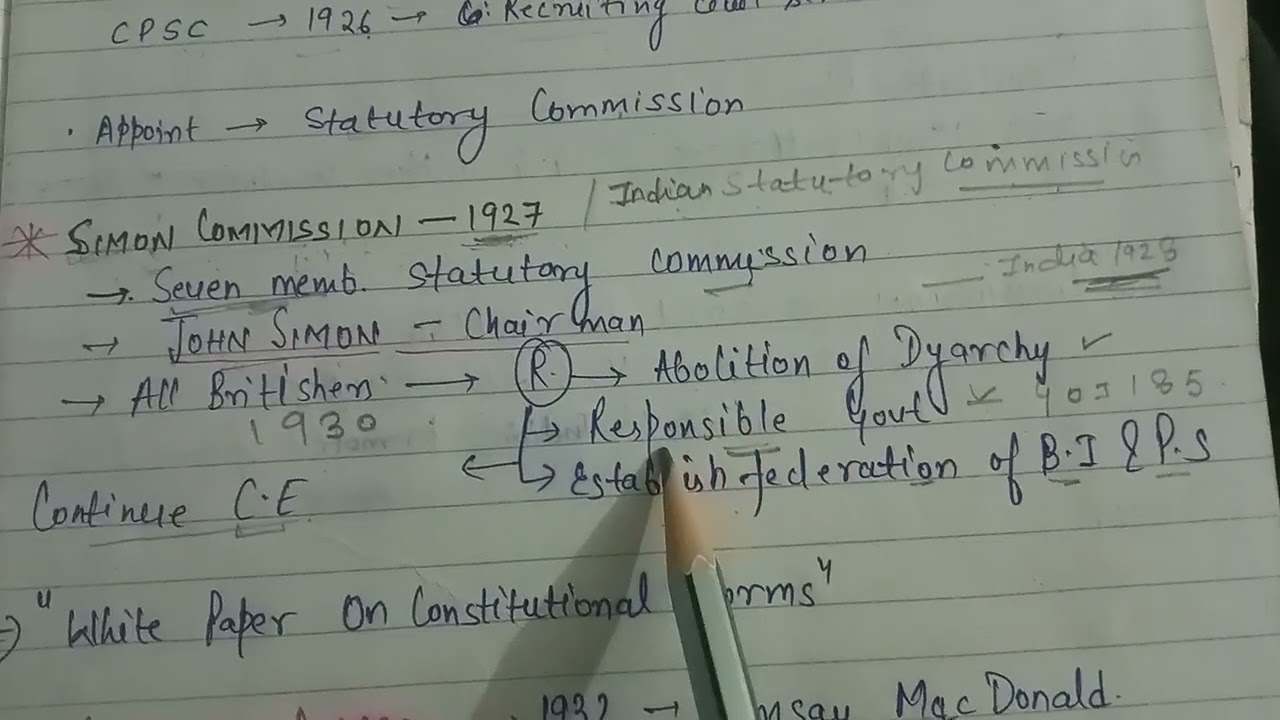 CPSC → 1926 → Recruiting
· Appoint → Statutory Commission
* SIMON COMMISSION – 1927 / Indian Statutory Commissin
→ Seven memb. Statutory Commission — India 1928
→ JOHN SIMON – Chairman
→ All Britishers → R. → Abolition of Dyarchy ✓
1930 → Responsible Govt ✓
→ Establish federation of B.I & P.S
Continue C.E
⇒ "White Paper On Constitutional orms"
1932 → MacDonald.